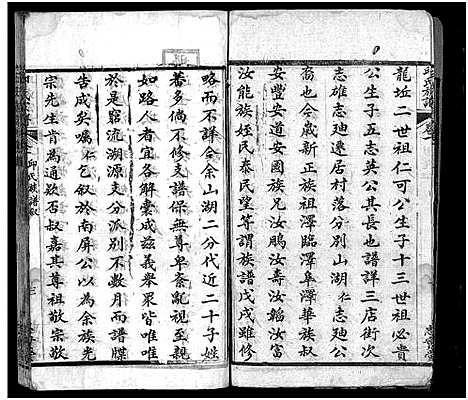 龍坵二世祖仁可公生子十三世祖必貴
公生子五志英公其長也譜詳三店街次
志雄志廸遷居村落分別山湖仁志廸公
裔也今歲新正族祖澤臨澤阜澤華族叔
安豐安道安國族兄汝鵬汝壽汝韜汝富
汝能族姪民泰民望等謂族譜戊戌雖修
略而不詳合余山湖二分代近二十子姓
蕃多倘不修支譜保無尊卑紊亂視至親
如路人者宜各解囊成玆義舉眾皆唯唯
於是窮流溯源支分派別不數月而譜牒
告成矣囑仁敘於南屏公以為余族光
宗先生肯為通歎否叔嘉其尊祖敬宗敬
邱氏族譜叙